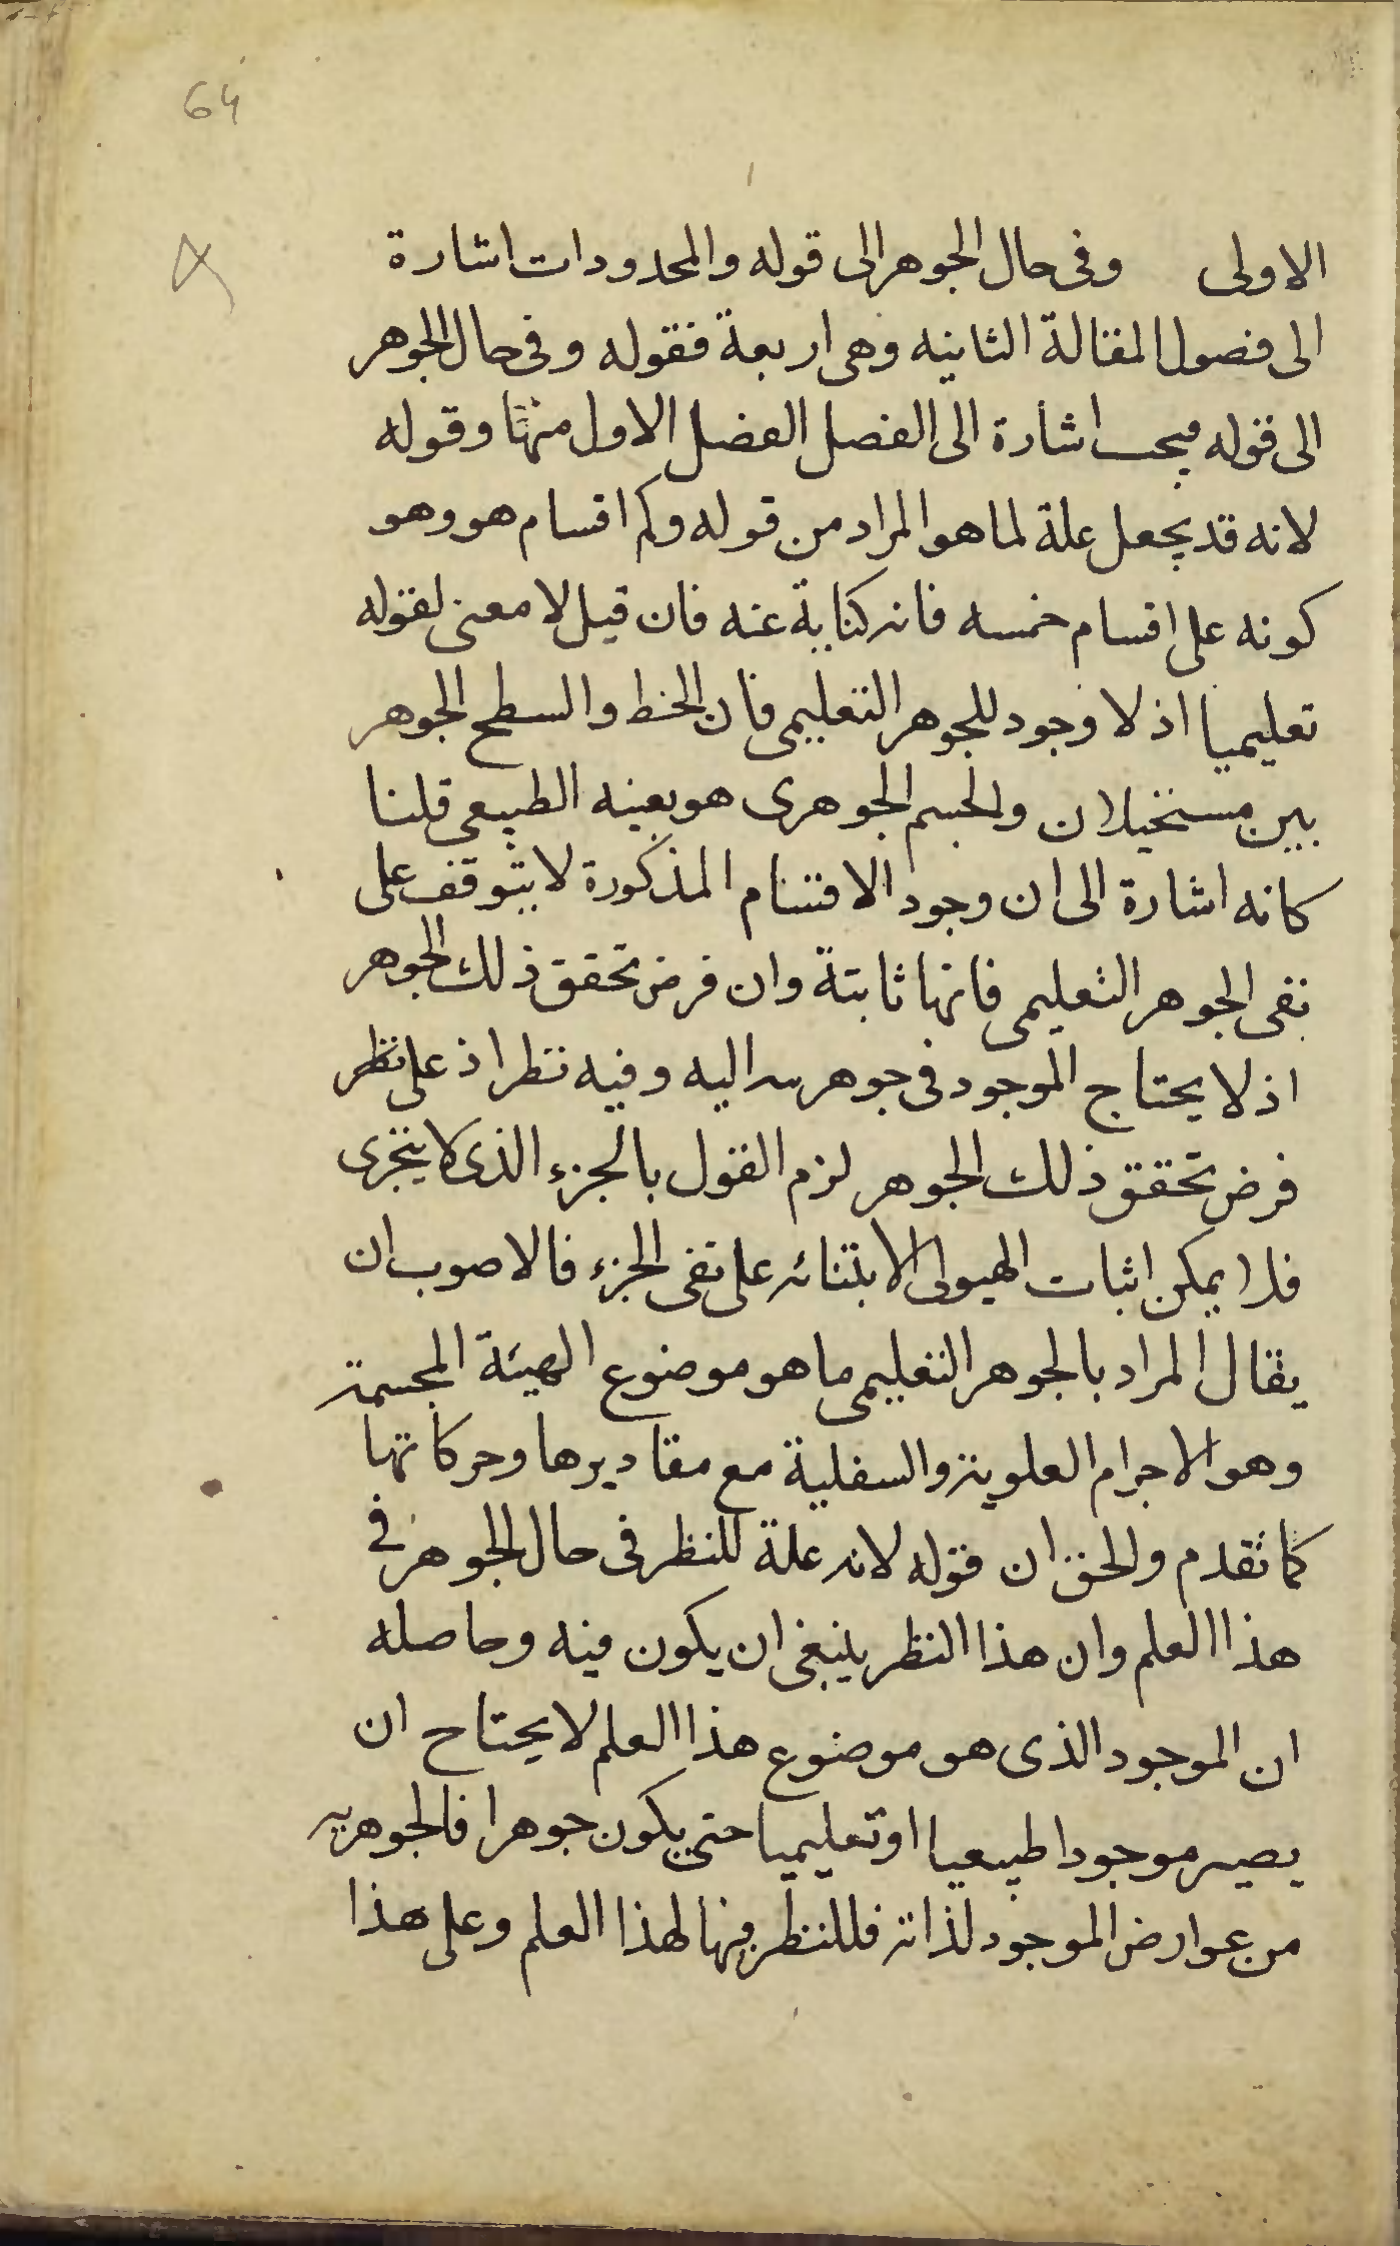 64
الاولى وفى حال الجوهر الى قوله والمحدودات اشارة
الى فصول المقالة الثانيه وهى اربعة فقوله وفى حال الجوهر
الى قوله فيجب اشارة الى الفصل الفضل الاول منها وقوله
لانه قد يجعل علة لما هو المراد من قوله وكم اقسام هو وهو
كونه على اقسام خمسه فانه كناية عنه فان قيل لا معنى لقوله
تعليميا اذ لا وجود للجوهر التعليمى فان الخط والسطح الجوهر
يين مستحيلان والجسم الجوهرى هو بعينه الطبيعى قلنا
كانه اشارة الى ان وجود الاقسام المذكورة لا يتوقف على
نفى الجوهر التعليمى فانها ثابتة وان فرض تحقق ذلك الجوهر
اذ لا يحتاج الموجود فى جوهر اليه وفيه نظر اذ على نظر
فرض تحقق ذلك الجوهر لزم القول بالجزء الذى لا يتجزى
فلا يمكن اثبات الهيولى لابتنائه على نفى الجزء فالاصوب ان
يقال المراد بالجوهر التعليمى ما هو موضوع الهيئة المجسمة
وهو الاجرام العلوية والسفلية مع مقاديرها وحركاتها
كما تقدم والحق ان قوله لانه علة للنظر فى حال الجوهر فى
هذا العلم وان هذا النظر ينبغى ان يكون فيه وحاصله
ان الموجود الذى هو موضوع هذا العلم لا يحتاح ان
يصير موجودا طبيعيا او تعليميا حتى يكون جوهرا فالجوهريه
من عوارض الموجود لذاته فللنظر فيها لهذا العلم وعلى هذا